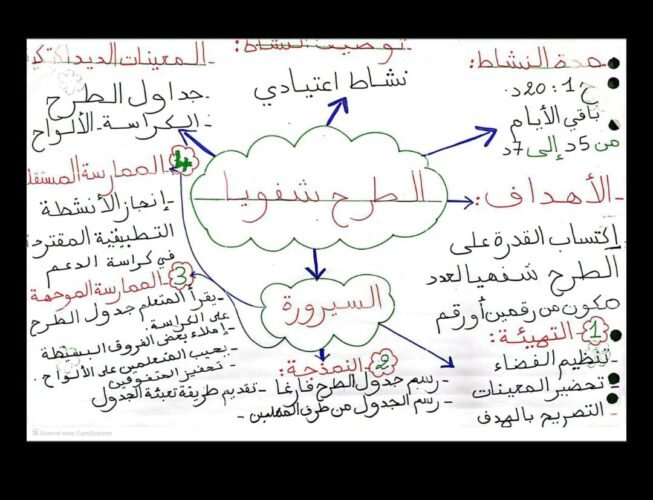 توصيف النشاط:
نشاط اعتيادي
مدة النشاط:
ح 1 : 20د.
باقي الأيام
من 5د إلى 7د
- المعينات الديداكتيكي
- جداول الطرح
- الكراسة - الألواح
الطرح شفويا
- الأهداف:
إكتساب القدرة على
الطرح شفهيا لعدد
مكون من رقمين أو رقم
السيرورة
1 - التهيئة:
- تنظيم الفضاء
- تحضير المعينات
- التصريح بالهدف
2 - النمذجة:
- رسم جدول الطرح فارغا
- رسم الجدول من طرف المتعلمين
- تقديم طريقة تعبئة الجدول
3 - الممارسة الموجهة
- يقرأ المتعلم جدول الطرح
على الكراسة.
- إملاء بعض الفروق البسيطة
- يجيب المتعلمين على الألواح.
- تحفيز المتفوقين
4 - الممارسة المستقل
- إنجاز الأنشطة
التطبيقية المقترحة
في كراسة الدعم
Scanned with CamScanner